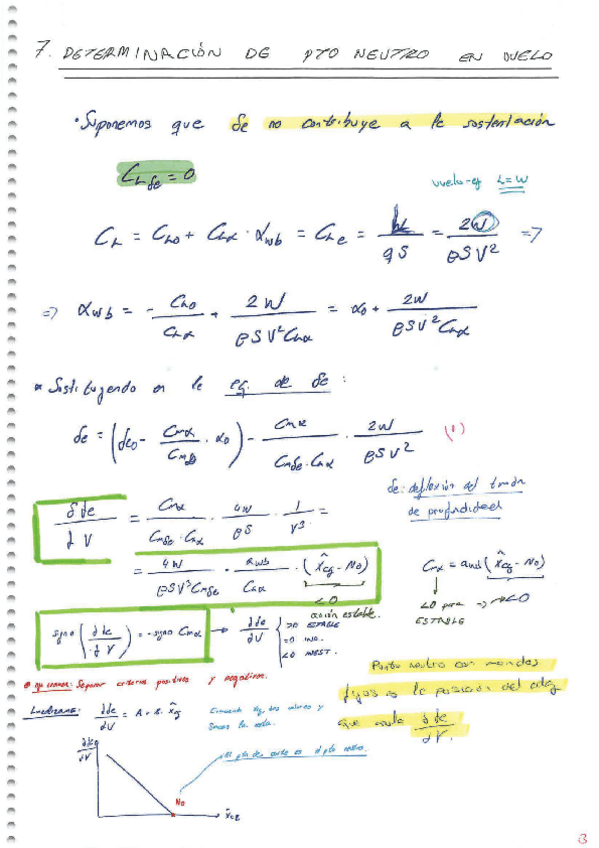 7. DETERMINACIÓN DE PTO NEUTRO EN VUELO
• Suponemos que δe no contribuye a la sustentación
C_Lδe = 0
vuelo-eq L=W
C_L = C_L0 + C_Lα · α_wb = C_Le = L/(qS) = 2W/(ρSV²) =>
=> α_wb = - C_L0/C_Lα + 2W/(ρSV²C_Lα) = α_0 + 2W/(ρSV²C_Lα)
* Sustituyendo en la eq. de δe :
δe = (δe0 - C_mα/C_mδe · α_0) - C_mα/(C_mδe · C_Lα) · 2W/(ρSV²) (1)
δe: deflexión del timón
de profundidad
∂δe/∂V = C_mα/(C_mδe · C_Lα) · 4W/(ρS) · 1/V³ =
= 4W/(ρSV³C_mδe) · a_wb/C_Lα · (x̂_cg - N_0)
<0
acción estable.
C_mα = a_wb (x̂_cg - N_0)
<0 para -> <0
ESTABLE
signo (∂δe/∂V) = -signo C_mα -> ∂δe/∂V { >0 ESTABLE
=0 IND.
<0 INEST.
Punto neutro con mandos
fijos es la posición del cdg
que anula ∂δe/∂V.
* que cranen: Separar criterios positivos y negativos.
Linealizamos: ∂δe/∂V = A + B · x̂_cg
valores y
la recta.
El pto de corte es el pto neutro.
∂δe/∂V
N_0
x̂_cg
3